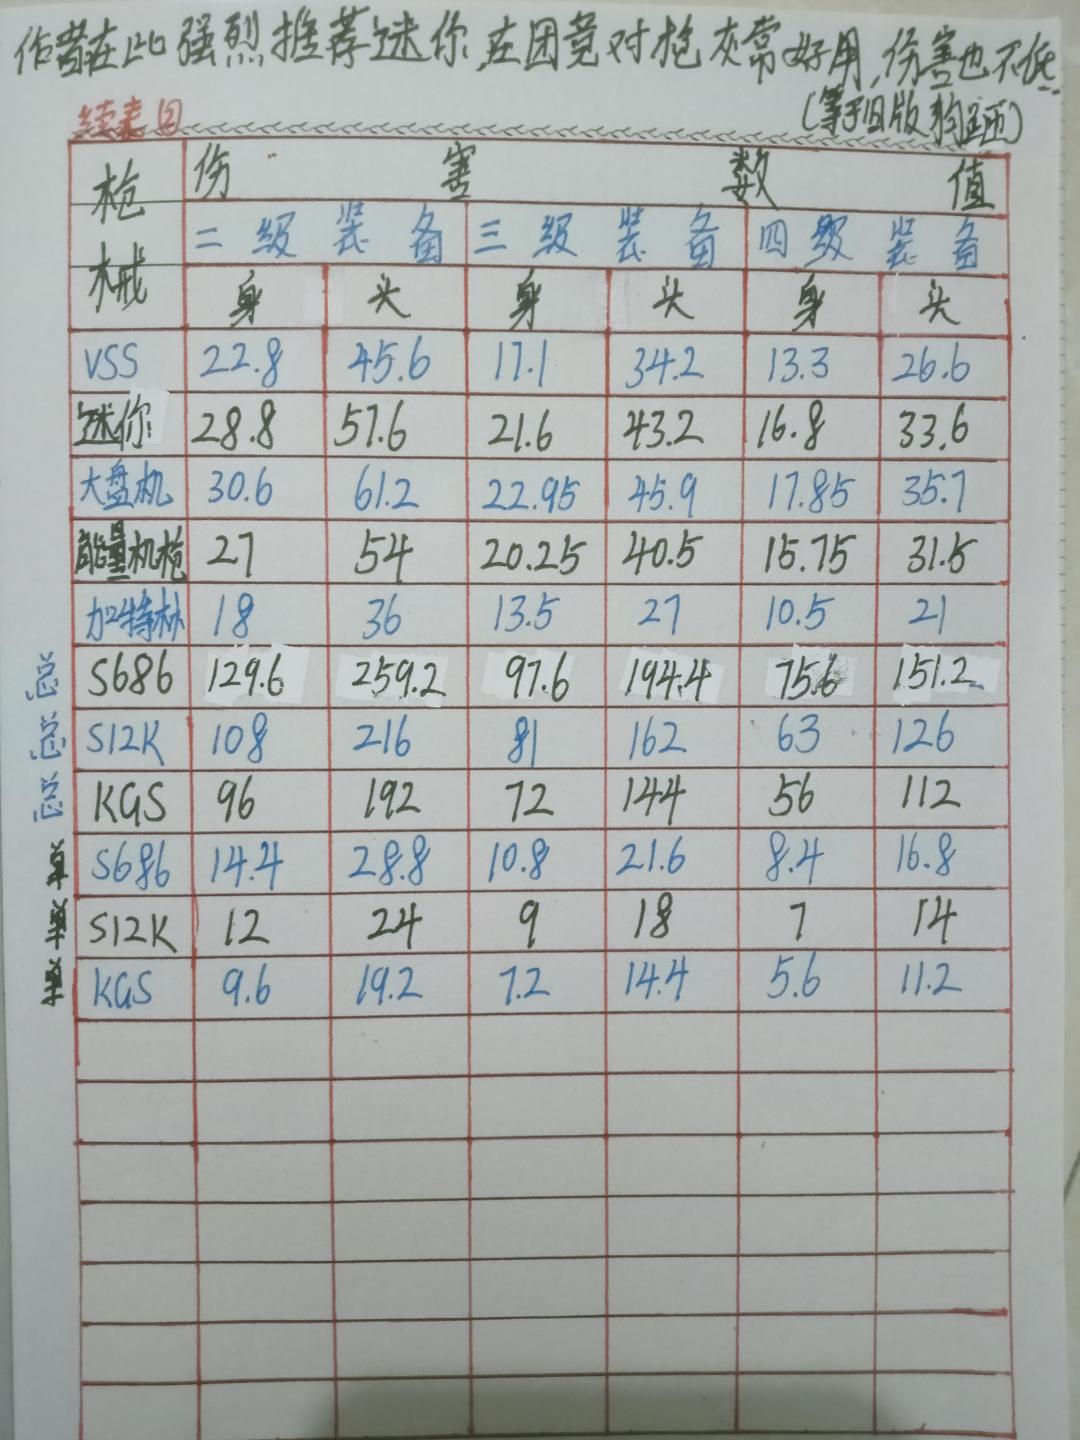 作者在此强烈推荐迷你,在团竞对枪灰常好用,伤害也不低
(等于旧版狗砸)
续表②
枪械 伤害数值
二级装备 三级装备 四级装备
身 头 身 头 身 头
VSS 22.8 45.6 17.1 34.2 13.3 26.6
迷你 28.8 57.6 21.6 43.2 16.8 33.6
大盘机 30.6 61.2 22.95 45.9 17.85 35.7
能量机枪 27 54 20.25 40.5 15.75 31.5
加特林 18 36 13.5 27 10.5 21
总 S686 129.6 259.2 97.6 194.4 75.6 151.2
总 S12K 108 216 81 162 63 126
总 KGS 96 192 72 144 56 112
单 S686 14.4 28.8 10.8 21.6 8.4 16.8
单 S12K 12 24 9 18 7 14
单 KGS 9.6 19.2 7.2 14.4 5.6 11.2